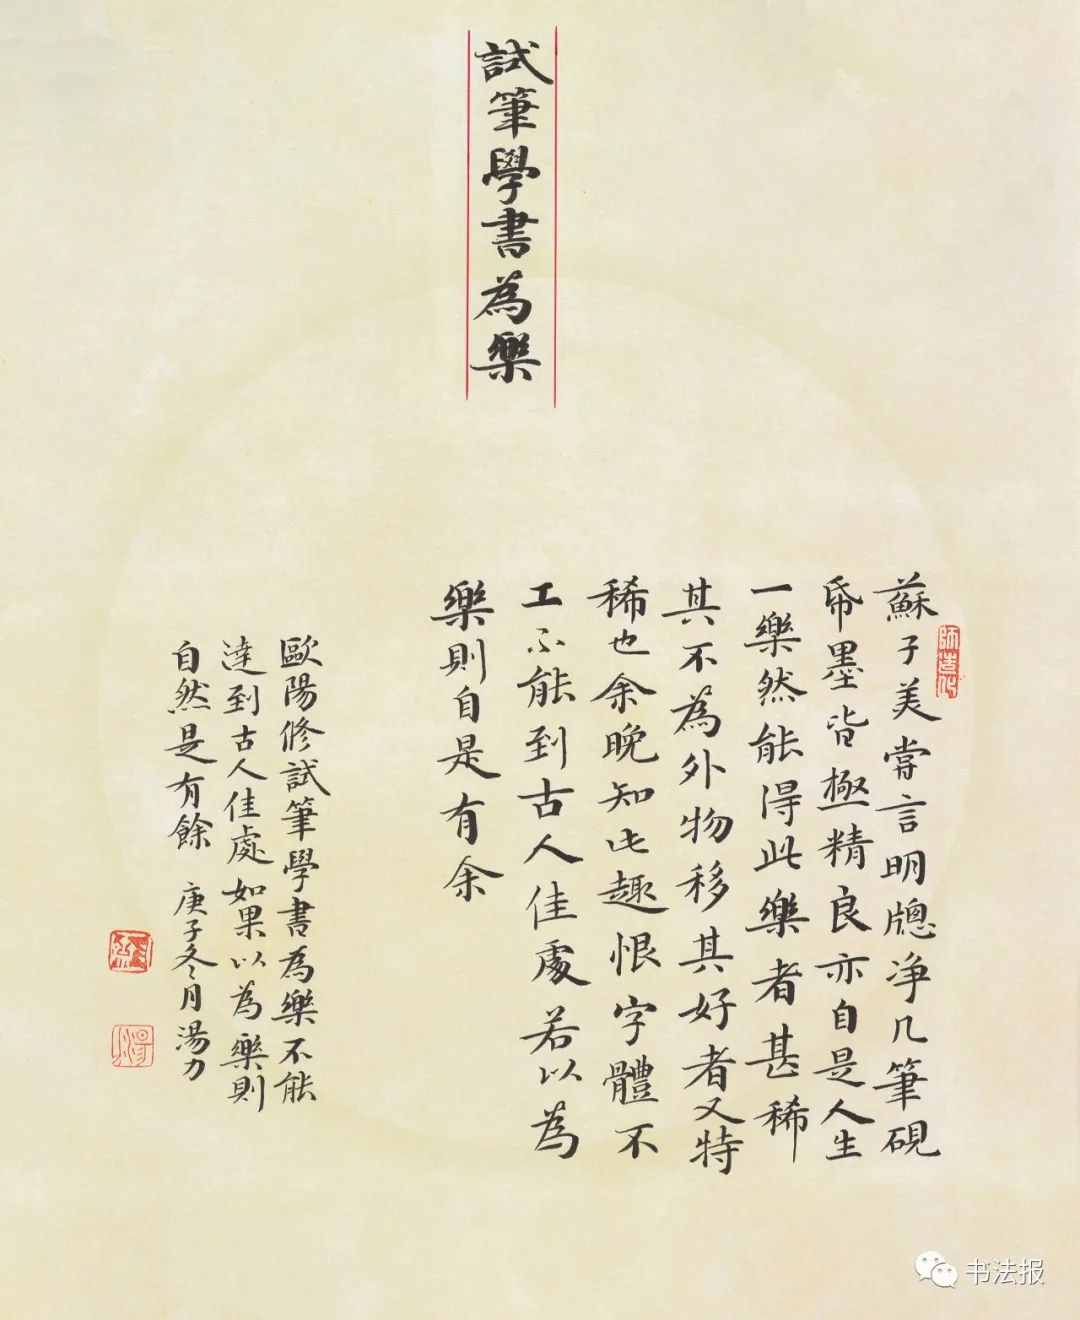 試筆學書為樂
蘇子美嘗言明牕净几筆硯
帋墨皆極精良亦自是人生
一樂然能得此樂者甚稀
其不為外物移其好者又特
稀也余晚知此趣恨字體不
工不能到古人佳處若以為
樂則自是有余
歐陽修試筆學書為樂不能
達到古人佳處如果以為樂則
自然是有餘 庚子冬月湯力
師造化
书法报